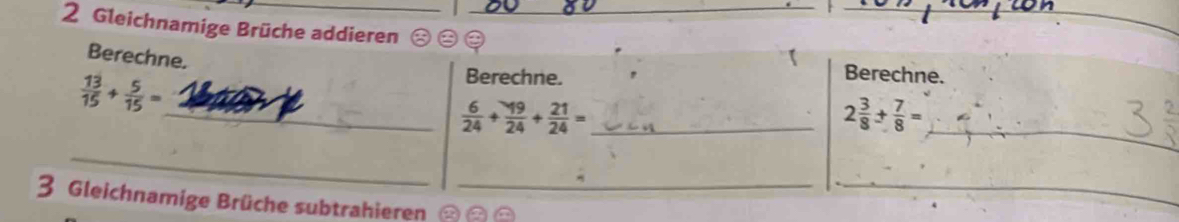 80 80
2 Gleichnamige Brüche addieren
Berechne.
13/15 + 5/15 =
Berechne.
6/24 + 19/24 + 21/24 =
Berechne.
2 3/8 + 7/8 =
3
3 Gleichnamige Brüche subtrahieren